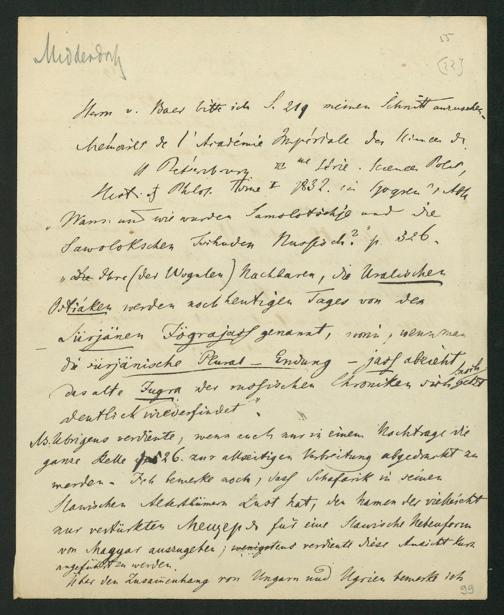 Middendorf
55
(22)
Herrn v. Baer bitte ich S. 219 meinen Schnitt anzusehen
Mémoires de l'Académie Impériale des Sciences de
St Petersbourg VI me Série. Sciences Polit,
Hist. & Philol. Tome I 1832. in Sjögren's Abh
„Wann und wie wurden Sawolotschje und die
Sawolokschen Tschuden Russisch?" p. 326.
„Ihre (der Wogulen) Nachbaren, die Uralischen
Ostiaken werden noch heutigen Tages von den
Sürjänen Jögrajass genannt, worin, wenn man
die sürjänische Plural-Endung -jass abzieht, sich
das alte Jugra der russischen Chroniken sich selbst
deutlich wiederfindet".
NB. Übrigens verdiente, wenn auch nur in einem Nachtrage die
ganze Stelle p 526. zur allseitigen Verbreitung abgedruckt zu
werden. Ich bemerke noch, dass Schafarik in seinen
Slawischen Alterthümern Lust hat, den Namen der vielleicht
nur vertürkten Мещера für eine Slawische Nebenform
von Magyar auszugeben; wenigstens verdiente diese Ansicht kurz
angeführt zu werden.
Über den Zusammenhang von Ungarn und Ugrien bemerke ich
99